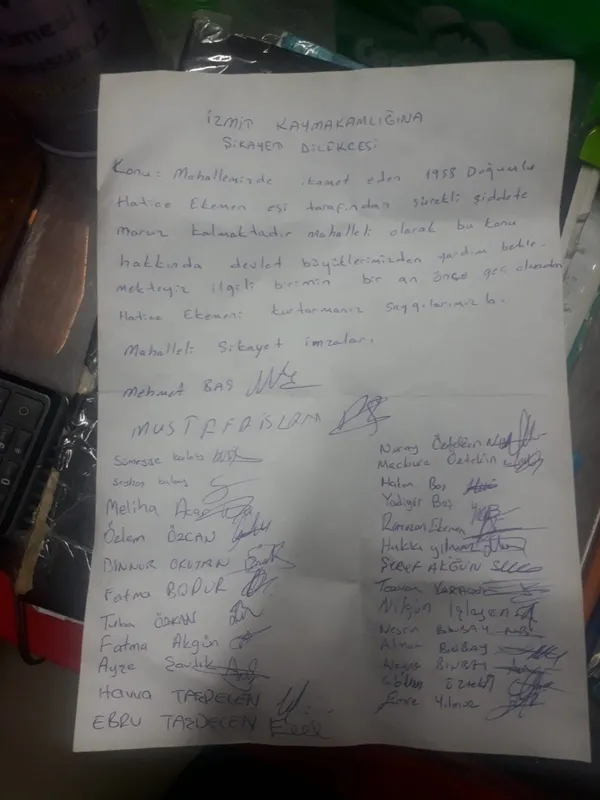 İZMİT KAYMAKAMLIĞINA
ŞİKAYET DİLEKÇESİ
Konu: Mahallemizde ikamet eden 1958 Doğumlu
Hatice Ekemen eşi tarafından sürekli şiddete
maruz kalmaktadır mahalleli olarak bu konu
hakkında devlet büyüklerimizden yardım bekle-
mekteyiz ilgili birimin bir an önce geç olmadan
Hatice Ekemeni kurtarmanız saygılarımızla.
Mahalleli Şikayet imzaları.
Mehmet BAŞ
MUSTAFA İSLAM
Sümeyye
Meliha
Özlem ÖZCAN
BİNNUR OKUTAN
Fatma BODUR
Tuba ÖZKAN
Fatma Akgün
Ayşe
Havva TAŞDELEN
EBRU TAŞDELEN
Nuray Öztekin
Macbure Öztekin
Hatun Baş
Yadigar Baş
Ramazan Ekemen
Hakkı yılmaz
ŞEREF AKGÜN
Nilgün İşleyen
Nesrin BİNBAY
BİNBAY
BİNBAY
Emre Yılmaz